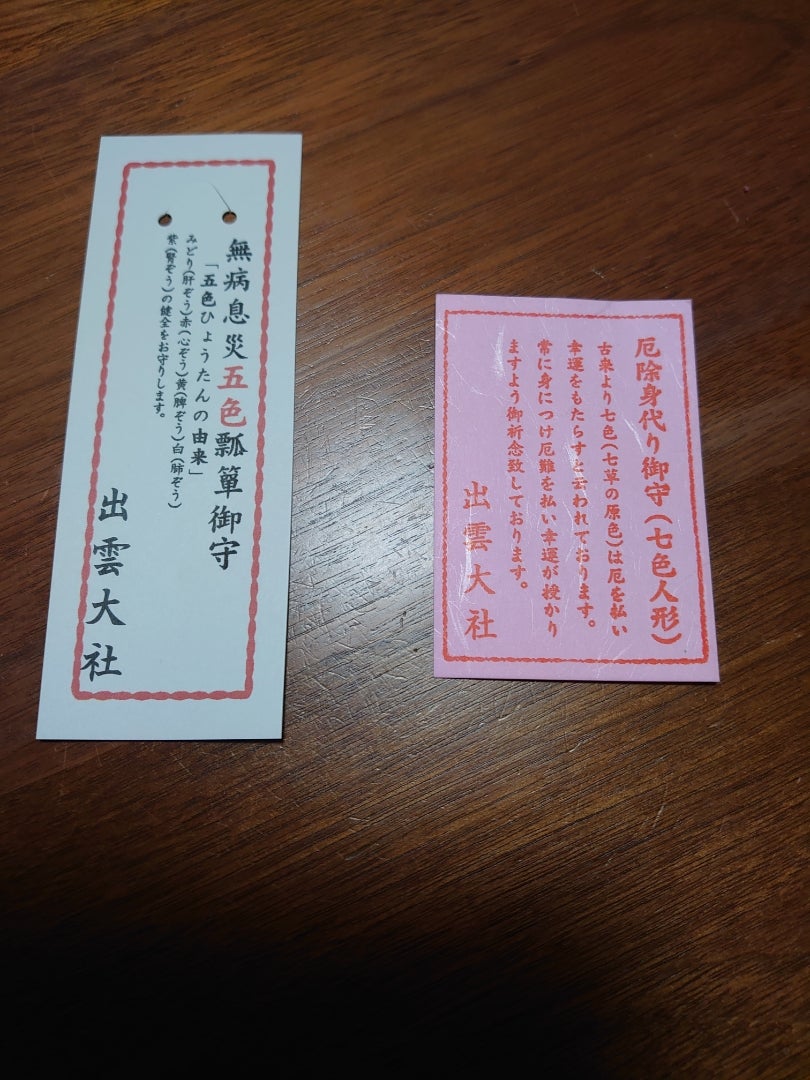 無病息災五色瓢箪御守
「五色ひょうたんの由来」
みどり(肝ぞう)赤(心ぞう)黄(脾ぞう)白(肺ぞう)
紫(腎ぞう)の健全をお守りします。
出雲大社
厄除身代り御守(七色人形)
古来より七色(七草の原色)は厄を払い
幸運をもたらすと云われております。
常に身につけ厄難を払い幸運が授かり
ますよう御祈念致しております。
出雲大社